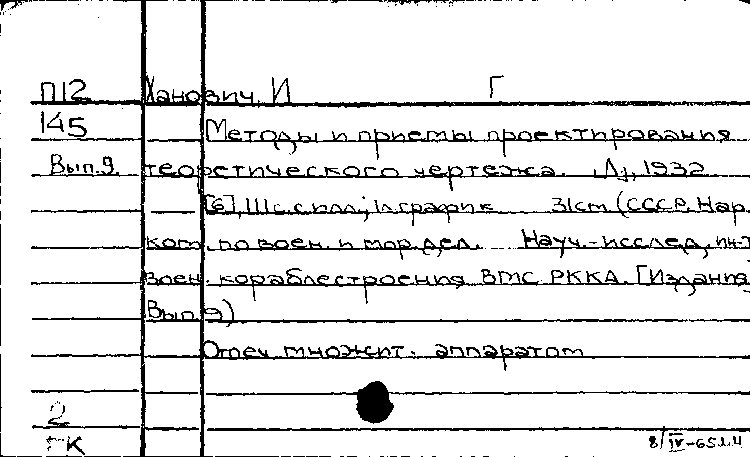 П12 Ханович, И Г
145 Методы и приемы проектирования
Вып.9. теоретического чертежа. Л., 1932
[6], 111с. с илл.; 1л. график 31см (СССР. Нар.
ком. по воен. и мор. дел. Науч.-исслед. ин-т
воен. кораблестроения ВМС РККА. [Издания]
Вып. 9)
Отпеч множит. аппаратом
2
ГК 8/IV-65г.